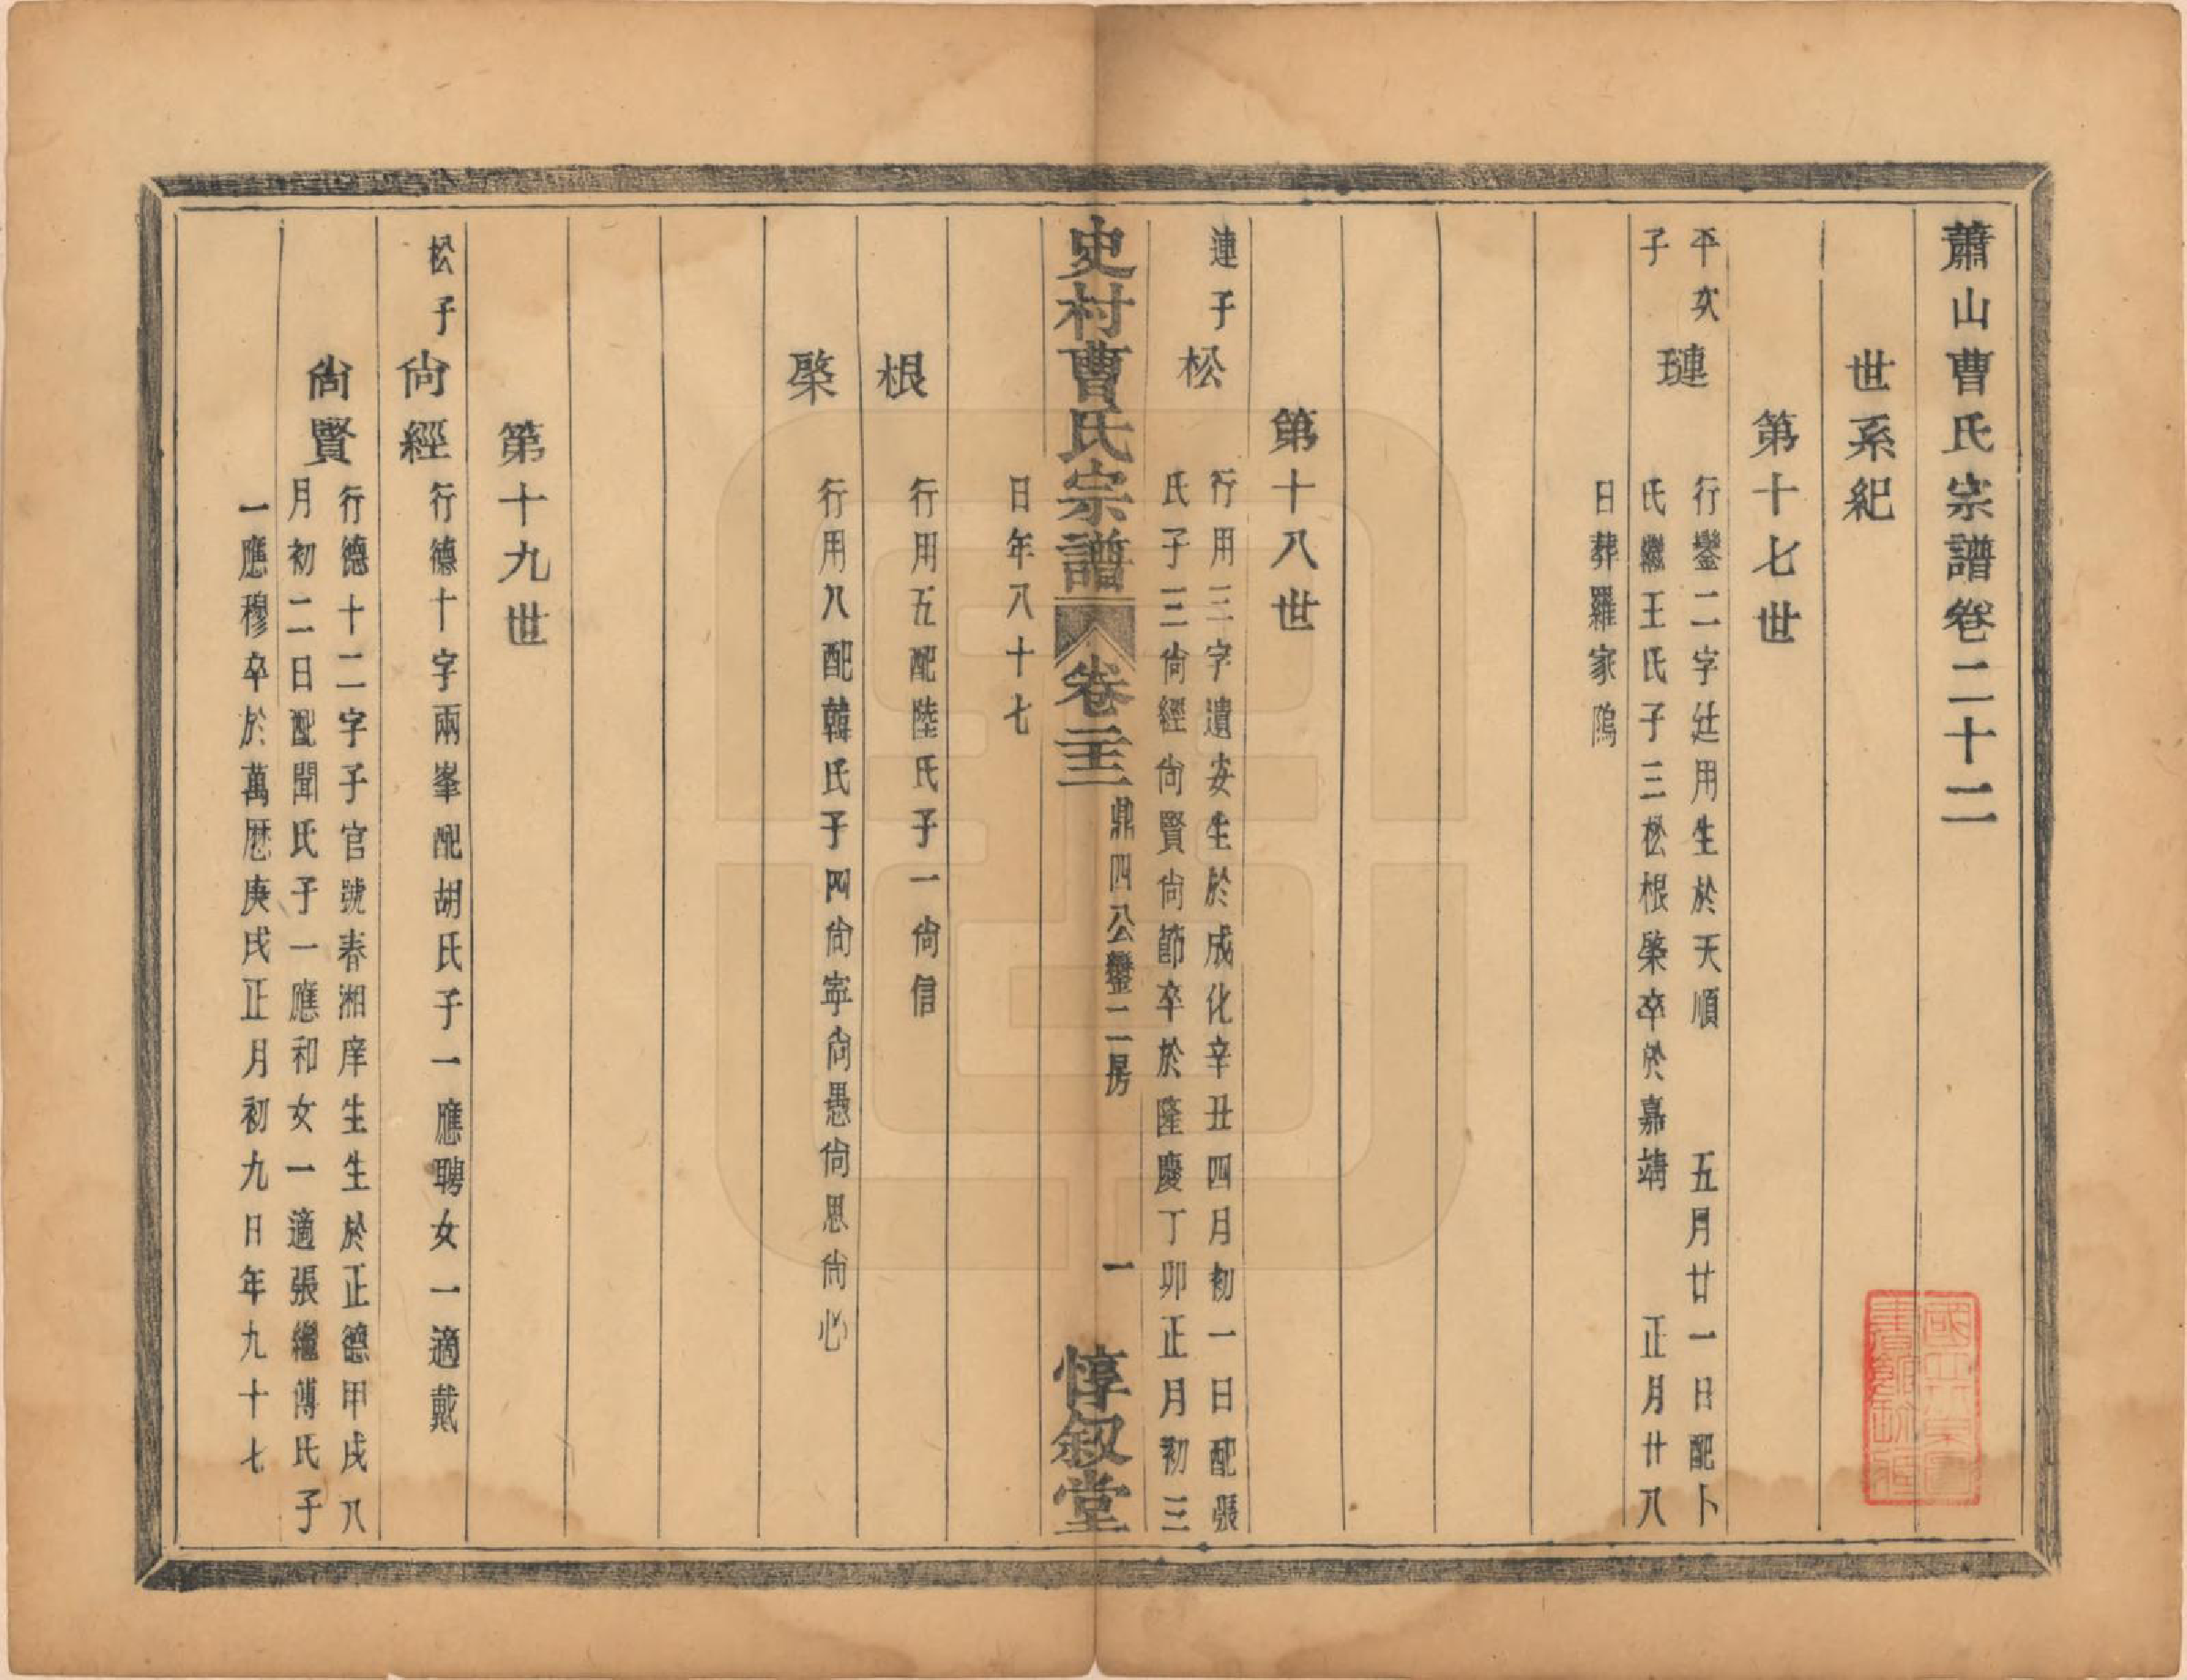 蕭山曹氏宗譜卷二十二
世系紀
第十七世
平次
子
璉
行鑾二字廷用生於天順　　五月廿一日配卜
氏繼王氏子三松根棨卒於嘉靖　　正月廿八
日葬羅家隖
第十八世
連子
松
行用三字遺安生於成化辛丑四月初一日配張
氏子三尙經尙賢尙節卒於隆慶丁卯正月初三
日年八十七
史村曹氏宗譜
卷二十二
鼎四公鑾二房
一
惇叙堂
根
行用五配陸氏子一尙信
棨
行用八配韓氏子四尙寧尙愚尙思尙心
第十九世
松子
尙經
行德十字兩峯配胡氏子一應聘女一適戴
尙賢
行德十二字子官號春湘庠生生於正德甲戌八
月初二日配聞氏子一應和女一適張繼傅氏子
一應穆卒於萬歷庚戌正月初九日年九十七